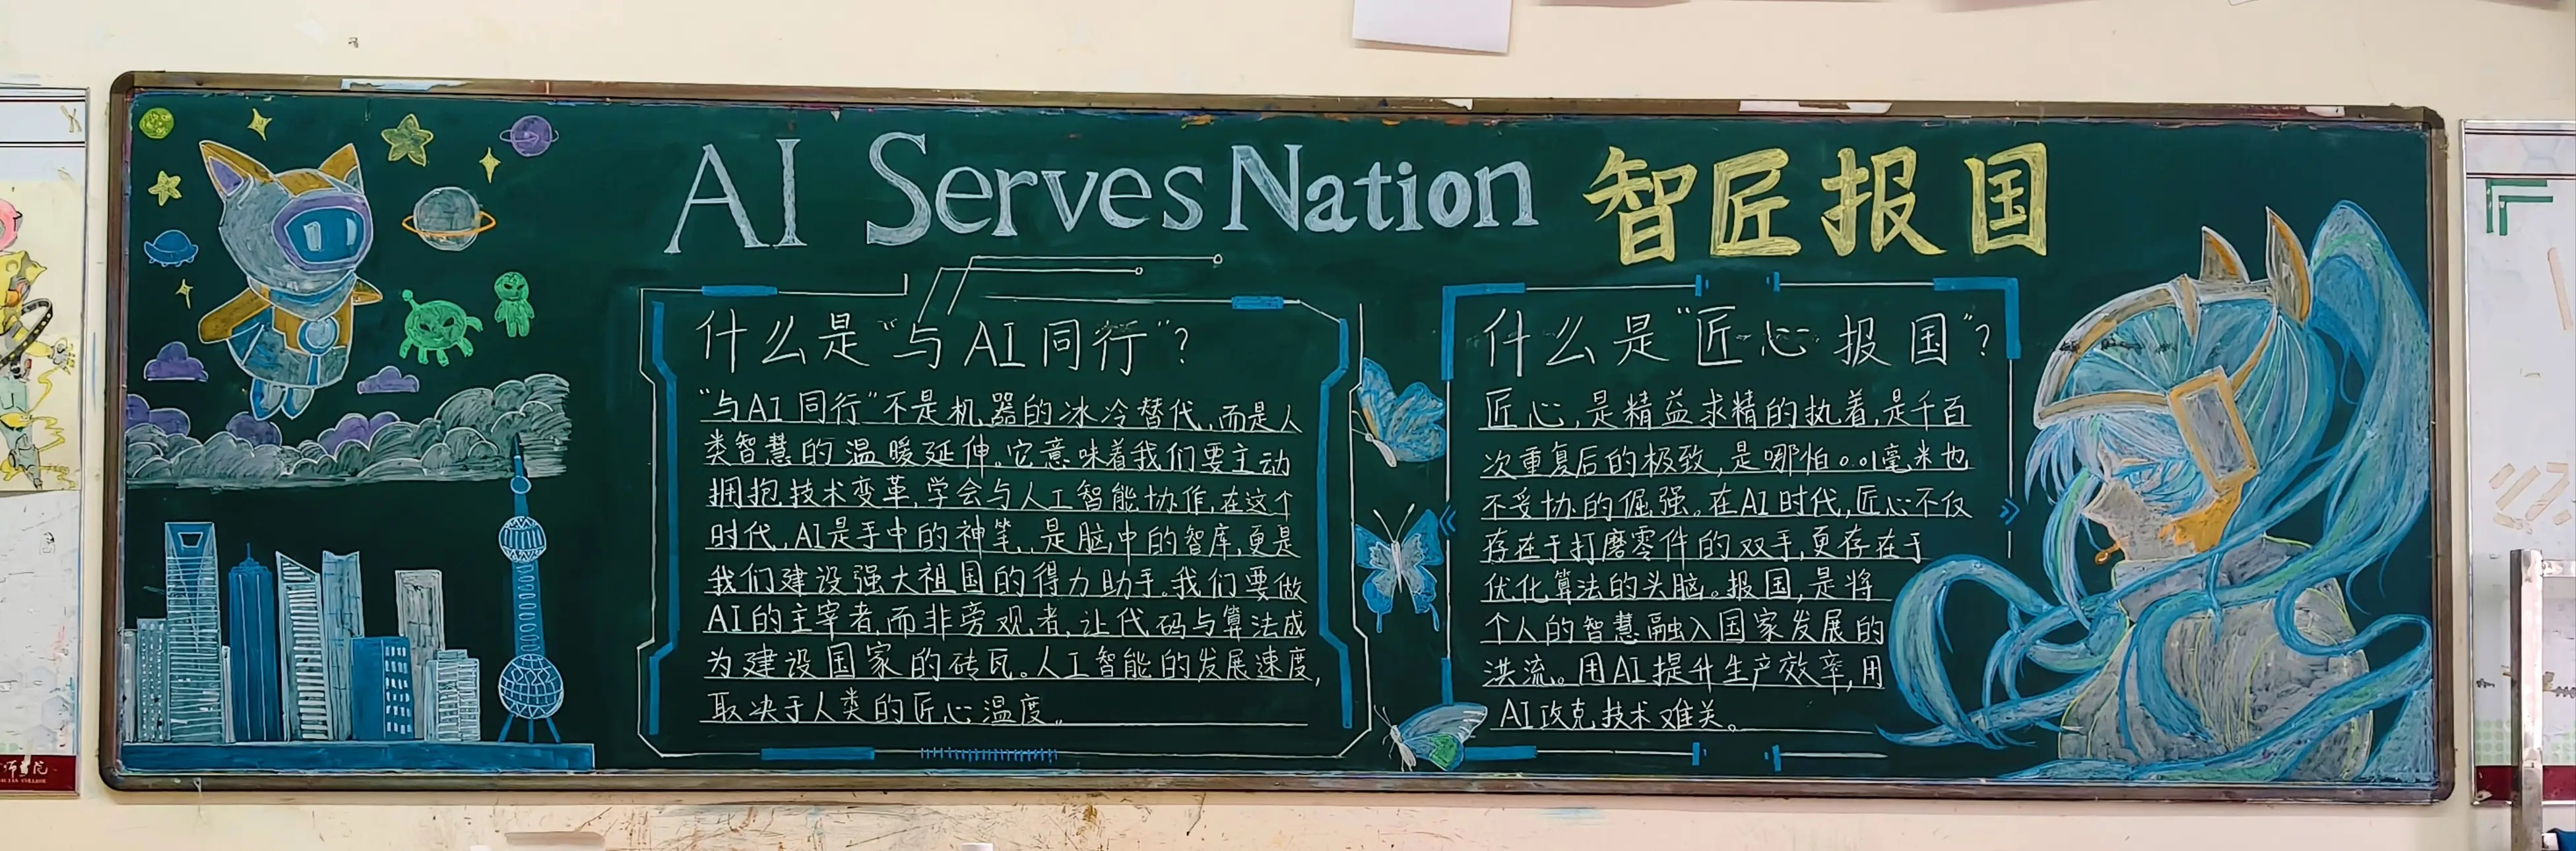 AI Serves Nation 智匠报国
什么是“与AI同行”？
“与AI同行”不是机器的冰冷替代，而是人
类智慧的温暖延伸。它意味着我们要主动
拥抱技术变革，学会与人工智能协作，在这个
时代，AI是手中的神笔，是脑中的智库，更是
我们建设强大祖国的得力助手。我们要做
AI的主宰者，而非旁观者，让代码与算法成
为建设国家的砖瓦。人工智能的发展速度，
取决于人类的匠心温度。
什么是“匠心报国”？
匠心，是精益求精的执着，是千百
次重复后的极致，是哪怕0.01毫米也
不妥协的倔强。在AI时代，匠心不仅
存在于打磨零件的双手，更存在于
优化算法的头脑。报国，是将
个人的智慧融入国家发展的
洪流。用AI提升生产效率，用
AI攻克技术难关。
师学院